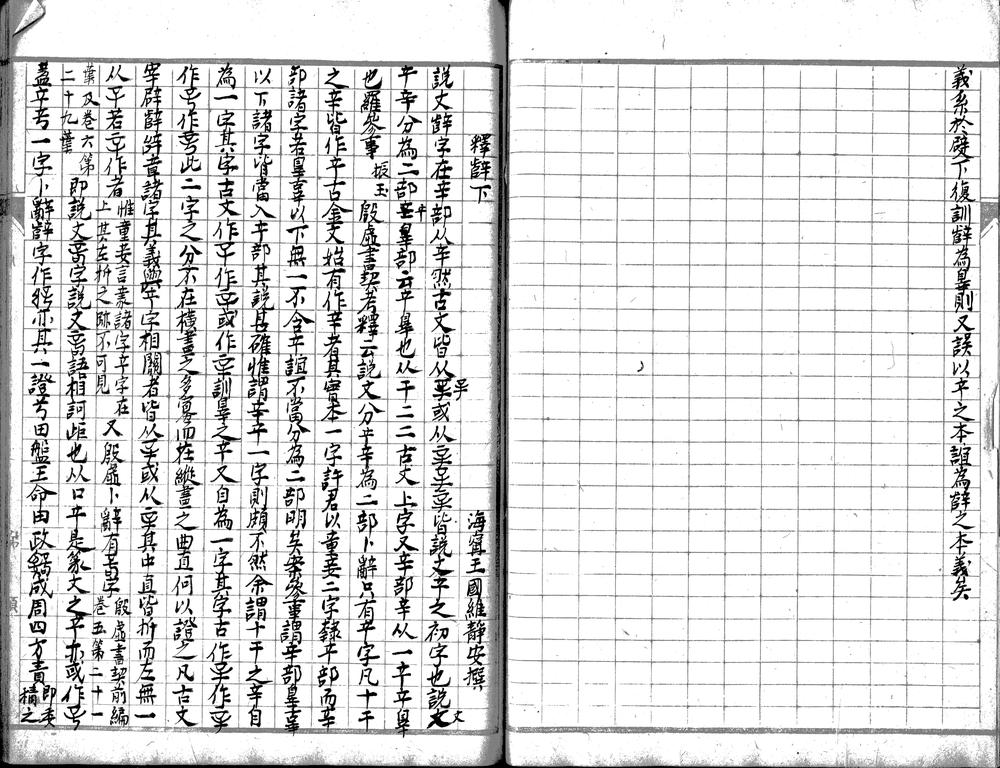 義系於辟下復訓辥為辠則又誤以䇂之本誼為辥之本義矣
釋辥下
海寧王國維靜安撰
說文辥字在辛部从辛然古文皆从或从皆說文䇂之初字也說文
䇂辛分為二部辛部云䇂辠也从干二二古文上字又辛部辛从一䇂䇂辠
也羅參事振玉殷虛書契考釋云說文分䇂辛為二部卜辭只有䇂字凡十干
之辛皆作䇂古金文始有作辛者其實本一字許君以童妾二字隸䇂部而辛
部諸字若辠辜以下無一不含䇂誼不當分為二部明矣案參事謂辛部辠辜
以下諸字皆當入䇂部其說甚確惟謂辛䇂一字則頗不然余謂十干之辛自
為一字其字古文作作或作訓辠之䇂又自為一字其字古作作
作作此二字之分不在橫畫之多寡而在縱畫之曲直何以證之凡古文
宰辟辥辭章諸字其義與䇂字相關者皆从或从其中直皆折而左無一
从若作者惟童妾言諸字䇂字在上其左折之跡不可見又殷虛卜辭有字殷虛書契前編卷五第二十一
葉及卷六第二十九葉即說文䇂字說文語相訶歫也从口䇂是篆文之䇂亦或作
蓋䇂一字卜辭辥字作亦其一證兮田盤王命田政成周四方責即委積之